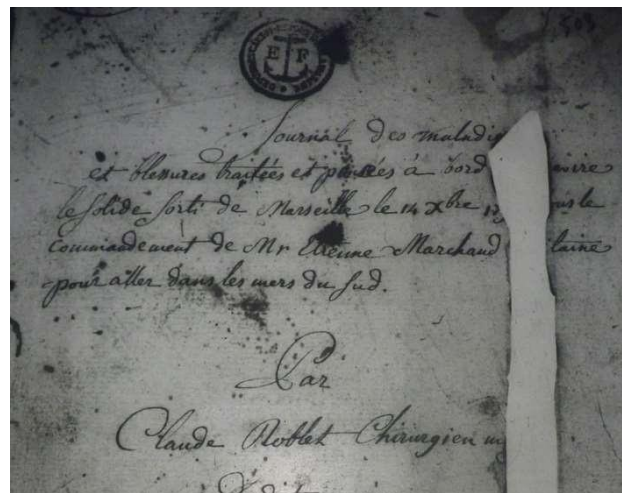 E F
503
Journal des maladi
et blessures traitées et pansées à bord
le Solide Sorti de Marseille le 14 Xbre
commandement de Mr Etienne Marchand
pour aller dans les mers du Sud.
Par
Claude Roblet Chirurgien